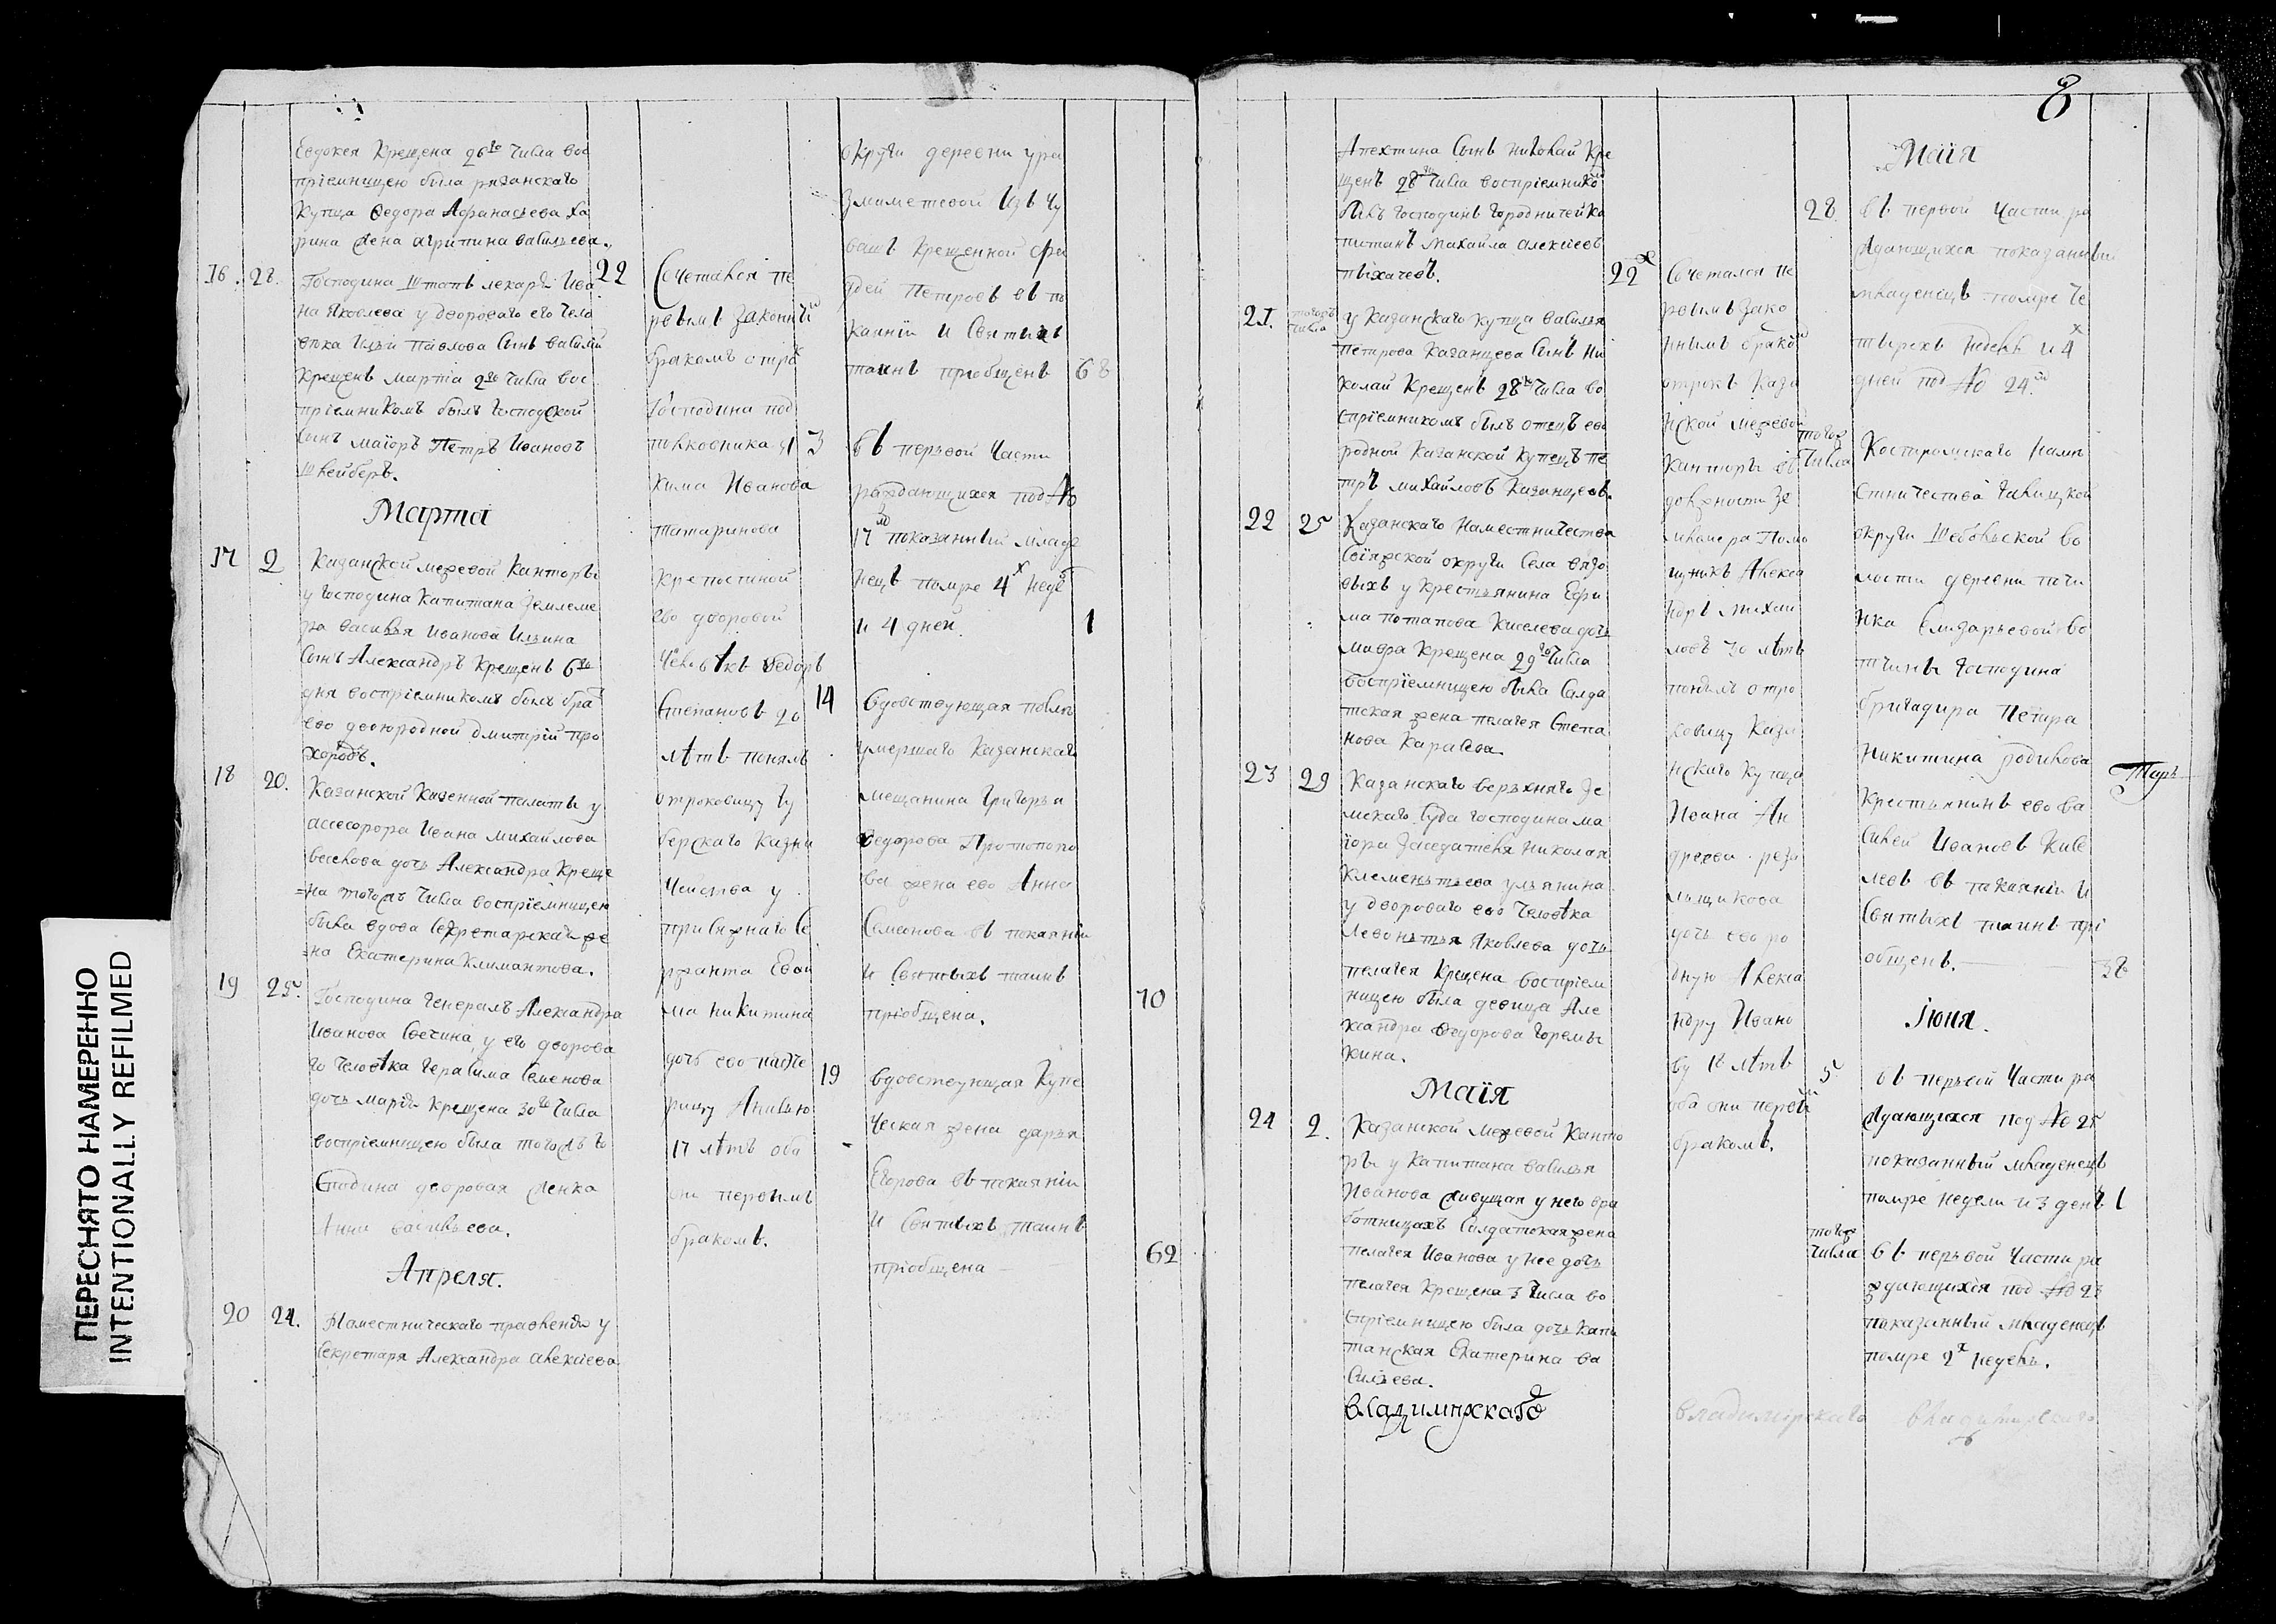 Евдокея Крещена 26го числа вос
пріемницею была рязанскаго
купца Федора Афанасьева ха
рина жена агрипина васильева.
16. 28. Господина Штапъ лекаря Ива
на Яковлева у двороваго его чело
века Ильи Павлова Сынъ василий
Крещенъ марта 2го числа вос
пріемникомъ былъ Господской
Сынъ маіоръ Петръ Ивановъ
Марта
17 2 Казанской межевой Канторы
у Господина Капитана Землеме
ра василья Иванова Ильина
Сынъ Александръ Крещенъ 6го
дня воспріемникомъ былъ бра
ево двоюродной Дмитрій про
хоровъ.
18 20. Казанской Казенной палаты у
ассесорора Ивана Михайлова
веселова дочь Александра Креще
=на тогожъ числа воспріемницею
была вдова Секретарская же
=на Екатерина Климантова.
19 25. Господина Генералъ Александра
Иванова Свечина у его дворова
го человѣка Герасима Семенова
дочь марія Крещена 30го числа
воспріемницею была тогожъ го
сподина дворовая женка
Анна васильева.
Апреля.
20 24. Наместническаго правленія у
Секретаря Александра алексіева
22 Сочетался пе
рвымъ законны
бракомъ отро
Господина под
полковника я
кима Иванова
татаринова
крепостной
ево дворовой
человѣкъ Федоръ
Степановъ 20
лѣтъ понялъ
отроковицу гу
бернскаго казна
чейства у
присяжнаго Се
ржанта Евои
ма никитина
дочь ево
17 лѣтъ оба
они первымъ
бракомъ.
округи деревни
вашъ крещенной фа
дей Петровъ въ по
каяніи и Святыхъ
таинъ пріобщенъ 68
3 въ первой части
раждающихся под №
17м показанный младе
нецъ помре 4х неде
и 4 дней. 1
14 вдовствующая после
умершаго казанскаго
мещанина Григорья
Федорова Протопопо
ва жена ево Анна
Семионова въ покаяніи
и Святыхъ таинъ
пріобщена. 70
19 вдовствующая купе
ческая жена дарья
Егорова въ покаяніи
и Святыхъ таинъ
пріобщена 62
8
Апехтина Сынъ николай Кре
щенъ 28го числа воспріемнико
былъ Господинъ городничей ка
питанъ михайла алексіевъ
пыхачевъ.
21. тогожъ числа у Казанскаго купца василья
Петрова Казанцева Сынъ Ни
колай Крещенъ 28го числа во
спріемникомъ былъ отецъ ево
родной казанской купецъ пе
тръ михайловъ Казанцовъ.
22 25 Казанскаго наместничества
Свіяжской округи Села вязо
выхъ у крестьянина Ефи
ма потапова Киселева дочь
мавра Крещена 29го числа
воспріемницею была Салда
тская жена пелагея Степа
нова Карасева.
23 29 Казанскаго верхняго зе
мскаго Суда господина ма
іора Заседателя николая
Клементьева ульянина
у двороваго ево человѣка
Левонтья Яковлева дочь
пелагея Крещена воспріем
ницею была девица Але
ксандра Федорова горемы
кина.
Маія
24 2. Казанской межевой Канто
ры у капитана василья
Иванова живущая у него вра
ботницахъ Салдатская жена
пелагея Иванова у нее дочь
пелагея Крещена 3 числа во
спріемницею была дочь капи
танская Екатерина ва
сильева.
владимирскаго
22 Сочетался пе
рвымъ зако
ннымъ брако
отрокъ Каза
нской межевой
канторы въ
должности Зе
млемера Помо
щникъ Алекса
ндръ михаи
ловъ 30 лѣтъ
понялъ отро
ковицу Каза
нскаго купца
Ивана Ан
дреева
дочь ево ро
дную Алекса
ндру Ивано
ву 16 лѣтъ
оба они первы
бракомъ.
владимирскаго
Маія
28. въ первой части ра
ждающихся показанны
младенецъ помре че
тырехъ недель и 4х
дней под № 24м
тогож числа Костромскаго наме
стничества
округи
лости деревни почи
нка Елизарьевой во
тчины Господина
бригадира Петра
Никитина
крестьянинъ ево ва
силей Ивановъ Кисе
левъ въ покаяніи и
Святыхъ таинъ прі
общенъ. 38
Іюня.
5 въ первой части ра
ждающихся под № 25
показанный младенецъ
помре недели и 3 день 1
тогож числа въ первой части ра
ждающихся под № 23
показанный младенецъ
помре 2х недель.
владимирскаго
ПЕРЕСНЯТО НАМЕРЕННО
INTENTIONALLY REFILMED